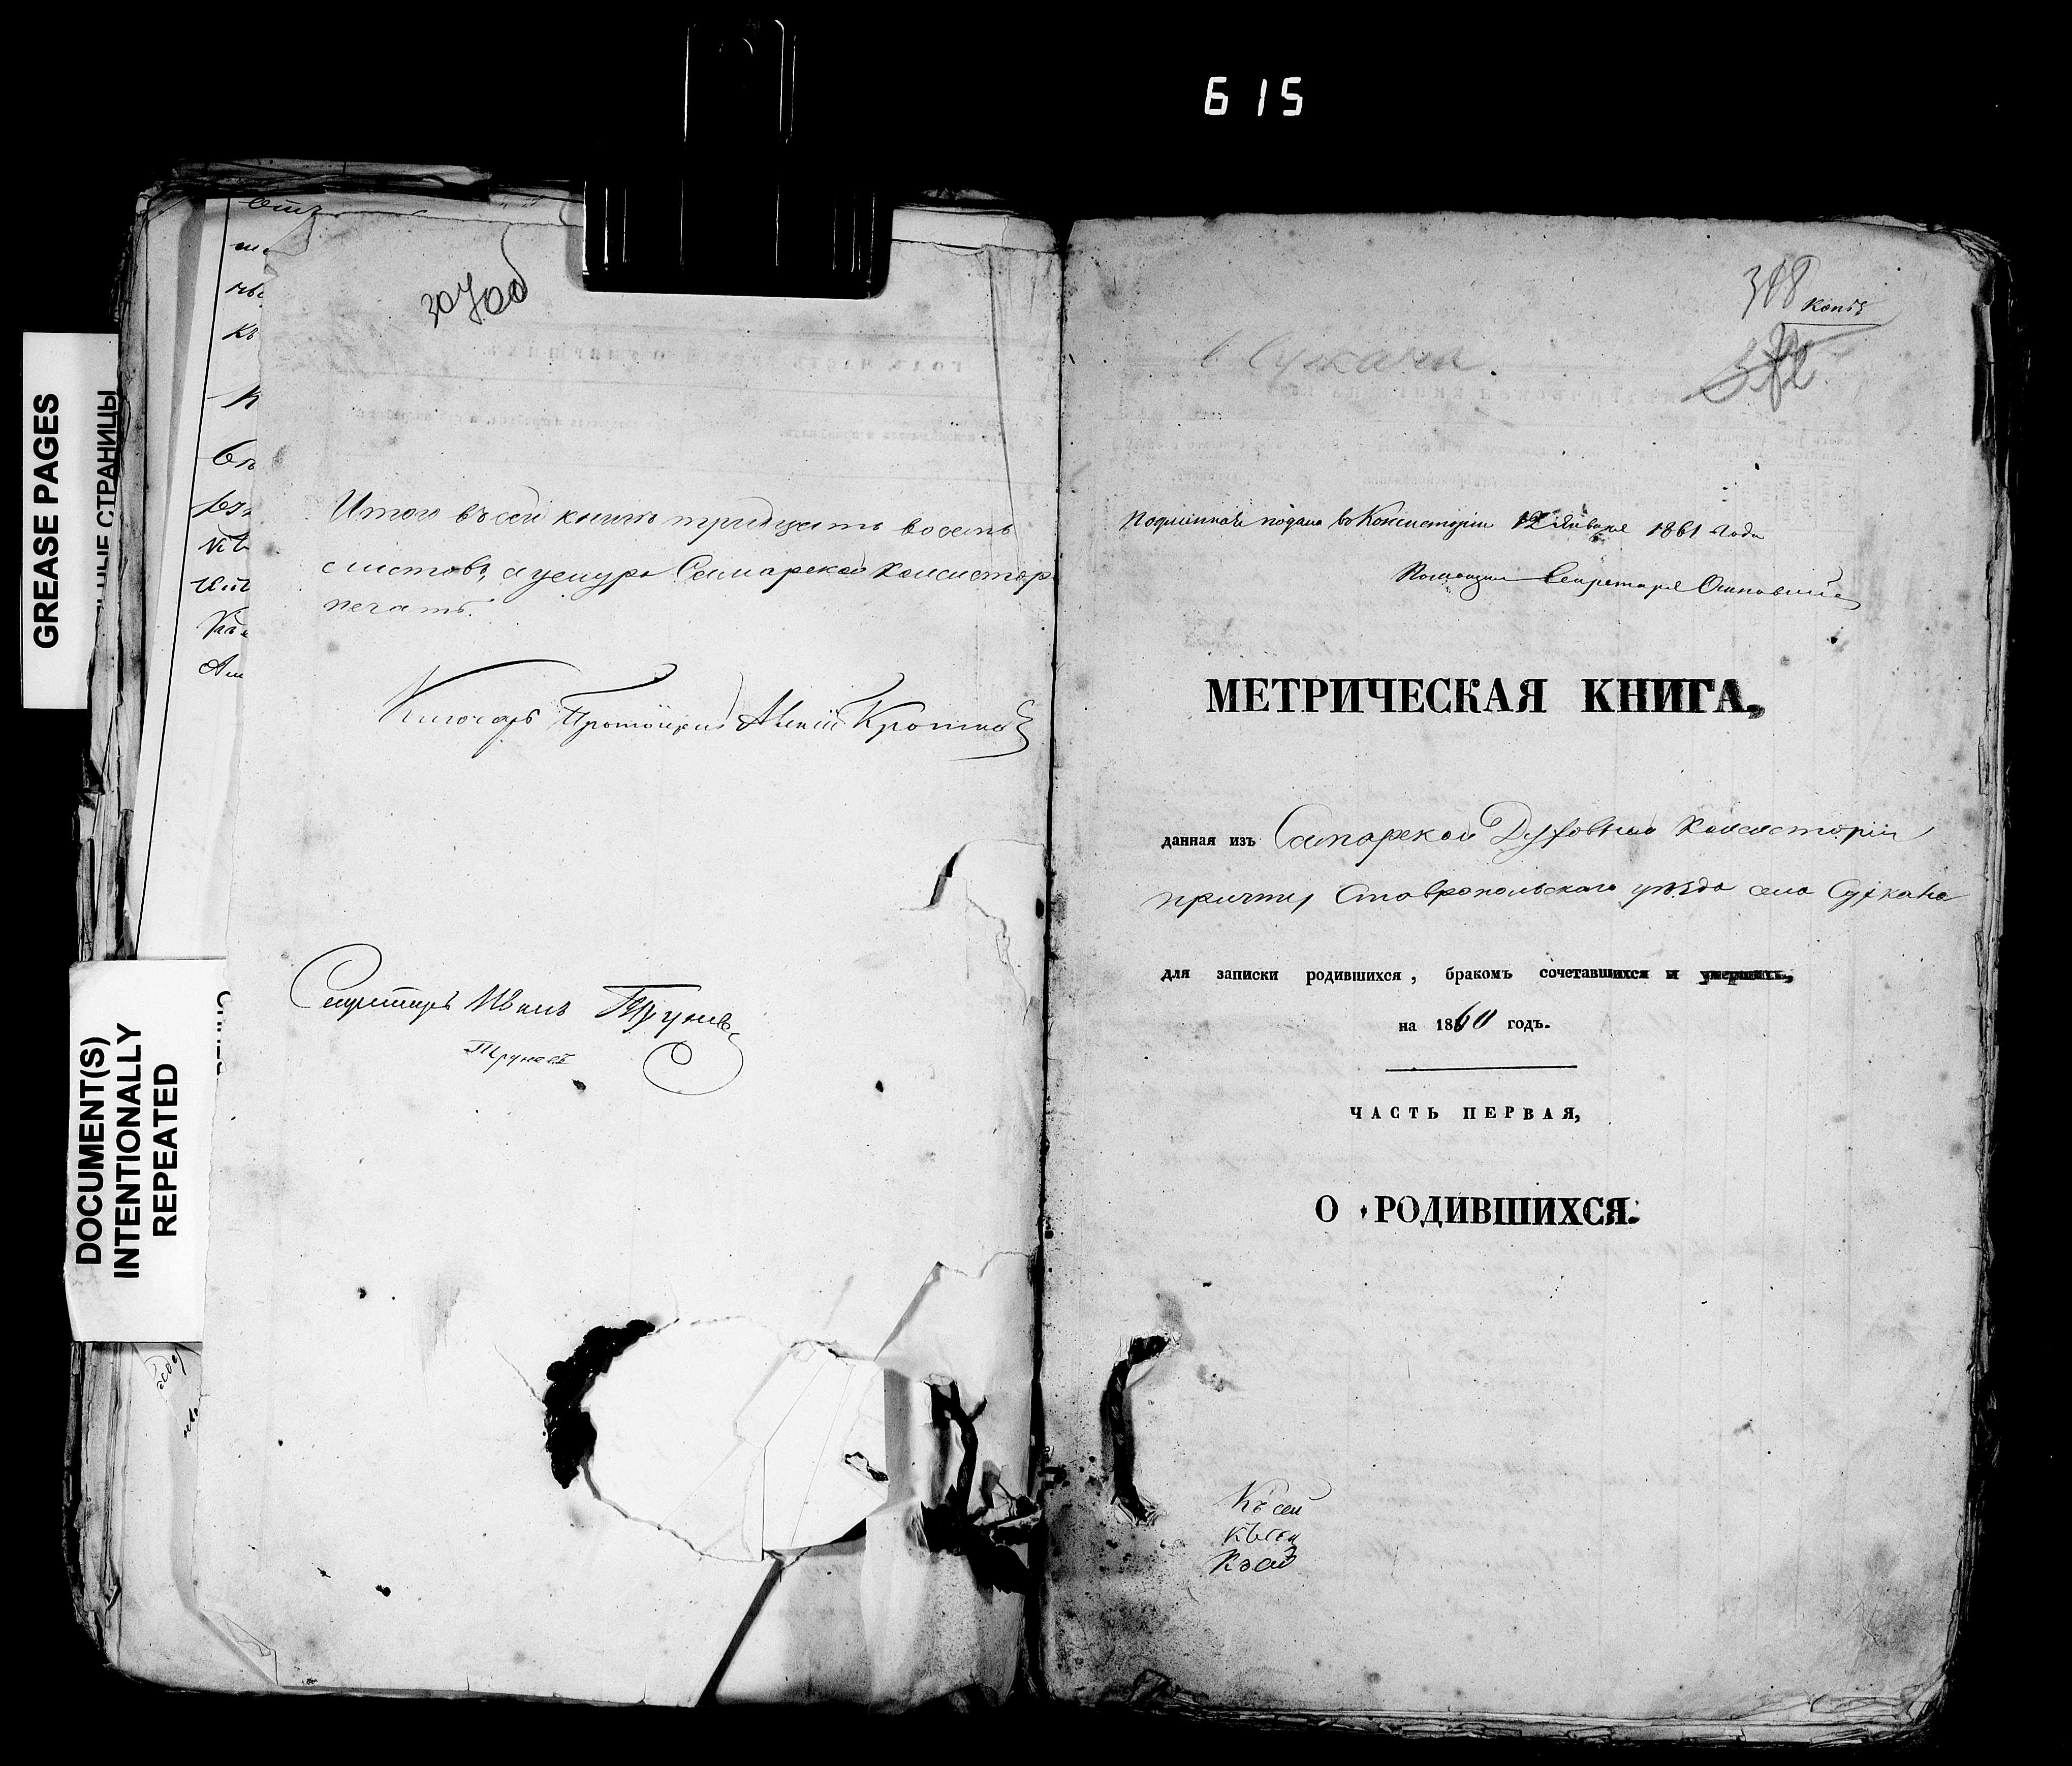 615
GREASE PAGES
НЫЕ СТРАНИЦЫ
DOCUMENT(S)
INTENTIONALLY
REPEATED
307об
Итого въ сей книгѣ тридцать восемь
листовъ, а у шнура Самарской Консистор
печать.
Ключарь Протоіерей Алексій Кротковъ
Секретарь Иванъ Труневъ
Труневъ
308
Копія
с Сускана.
Подлинная подана въ Консисторію 12 Января 1861 года
Помощникъ Секретаря
МЕТРИЧЕСКАЯ КНИГА,
данная изъ Самарской Духовной Консисторіи
причту Ставропольскаго уѣзда села Сускана
для записки родившихся, бракомъ сочетавшихся и умершихъ,
на 1860 годъ.
ЧАСТЬ ПЕРВАЯ,
О РОДИВШИХСЯ.
Къ сей
къ сей
Къ сей